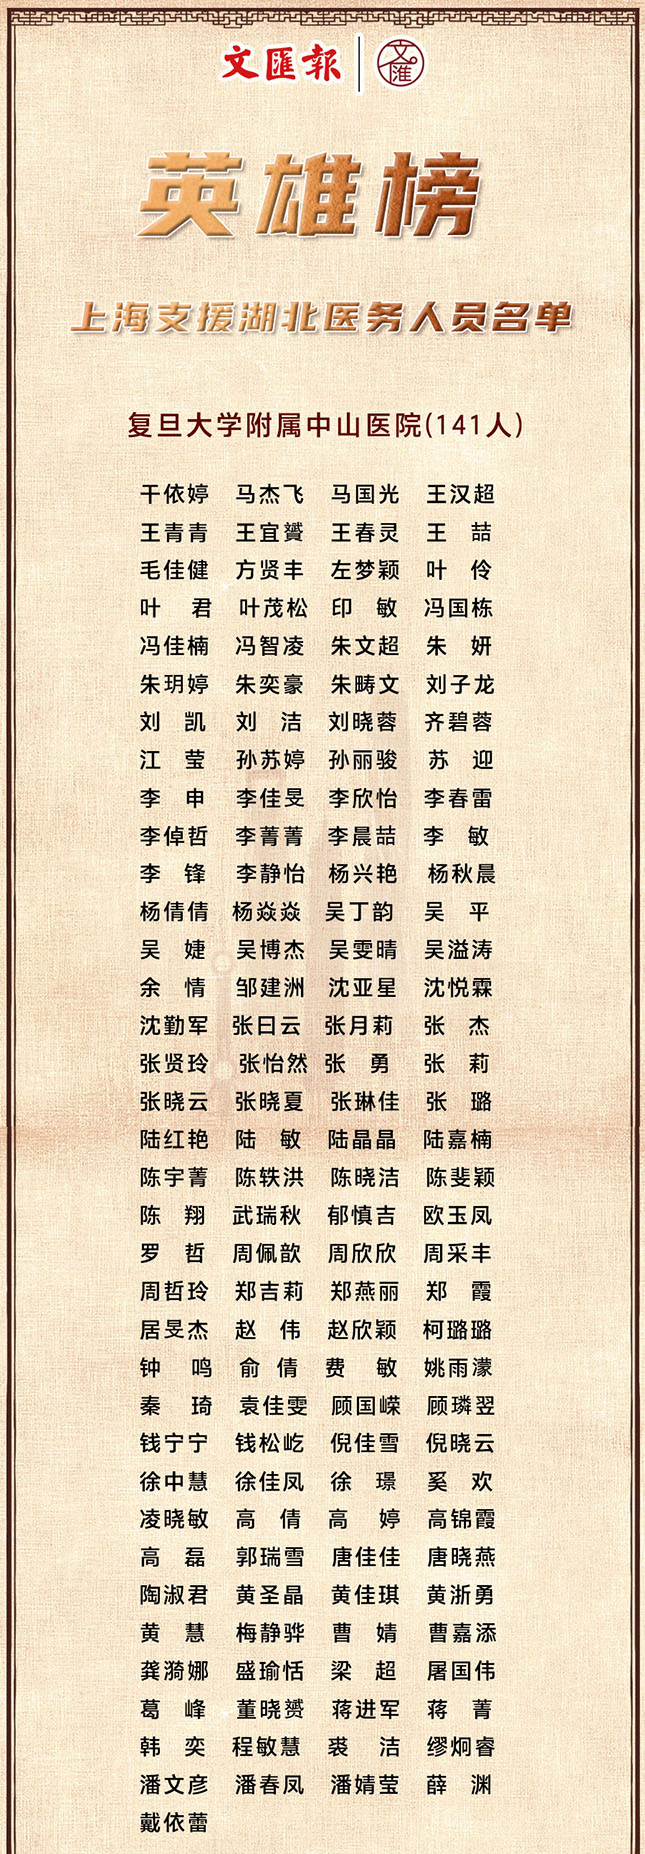 文匯報
文匯
英雄榜
上海支援湖北医务人员名单
复旦大学附属中山医院(141人)
干依婷 马杰飞 马国光 王汉超
王青青 王宜赟 王春灵 王 喆
毛佳健 方贤丰 左梦颖 叶 伶
叶 君 叶茂松 印 敏 冯国栋
冯佳楠 冯智凌 朱文超 朱 妍
朱玥婷 朱奕豪 朱畴文 刘子龙
刘 凯 刘 洁 刘晓蓉 齐碧蓉
江 莹 孙苏婷 孙丽骏 苏 迎
李 申 李佳旻 李欣怡 李春雷
李倬哲 李菁菁 李晨喆 李 敏
李 锋 李静怡 杨兴艳 杨秋晨
杨倩倩 杨焱焱 吴丁韵 吴 平
吴 婕 吴博杰 吴雯晴 吴溢涛
余 情 邹建洲 沈亚星 沈悦霖
沈勤军 张曰云 张月莉 张 杰
张贤玲 张怡然 张 勇 张 莉
张晓云 张晓夏 张琳佳 张 璐
陆红艳 陆 敏 陆晶晶 陆嘉楠
陈宇菁 陈轶洪 陈晓洁 陈斐颖
陈 翔 武瑞秋 郁慎吉 欧玉凤
罗 哲 周佩歆 周欣欣 周采丰
周哲玲 郑吉莉 郑燕丽 郑 霞
居旻杰 赵 伟 赵欣颖 柯璐璐
钟 鸣 俞 倩 费 敏 姚雨濛
秦 琦 袁佳雯 顾国嵘 顾璘翌
钱宁宁 钱松屹 倪佳雪 倪晓云
徐中慧 徐佳凤 徐 璟 奚 欢
凌晓敏 高 倩 高 婷 高锦霞
高 磊 郭瑞雪 唐佳佳 唐晓燕
陶淑君 黄圣晶 黄佳琪 黄浙勇
黄 慧 梅静骅 曹 婧 曹嘉添
龚漪娜 盛瑜恬 梁 超 屠国伟
葛 峰 董晓赟 蒋进军 蒋 菁
韩 奕 程敏慧 裘 洁 缪炯睿
潘文彦 潘春凤 潘婧莹 薛 渊
戴依蕾